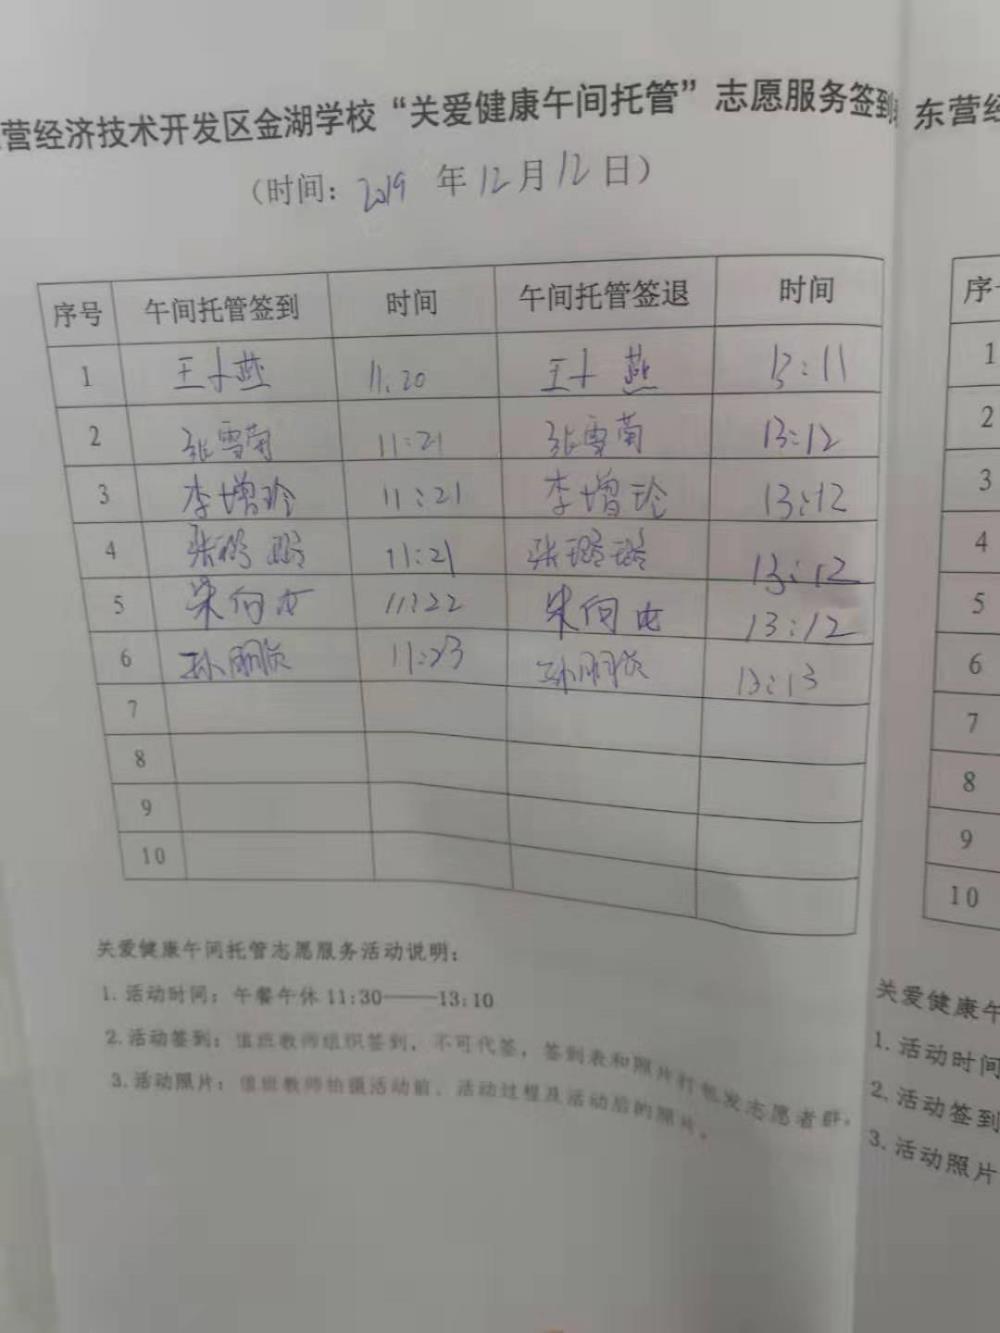 营经济技术开发区金湖学校“关爱健康午间托管”志愿服务签到
(时间: 2019 年 12 月 12 日)
序号 午间托管签到 时间 午间托管签退 时间
1 王小燕 11:20 王小燕 13:11
2 张雪菊 11:21 张雪菊 13:12
3 李增玲 11:21 李增玲 13:12
4 张璐璐 11:21 张璐璐 13:12
5 11:22 13:12
6 11:23 13:13
7
8
9
10
关爱健康午间托管志愿服务活动说明:
1. 活动时间: 午餐午休 11:30——13:10
2. 活动签到: 值班教师组织签到, 不可代签, 签到表和照片打包发志愿者群。
3. 活动照片: 值班教师拍摄活动前、活动过程及活动后的照片。
东营经
序
1
2
3
4
5
6
7
8
9
10
关爱健康午
1. 活动时间
2. 活动签到
3. 活动照片